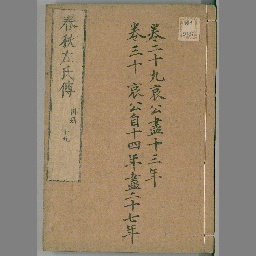 卷二十九哀公盡十三年
卷三十哀公自十四年盡二十七年
春秋左氏傳